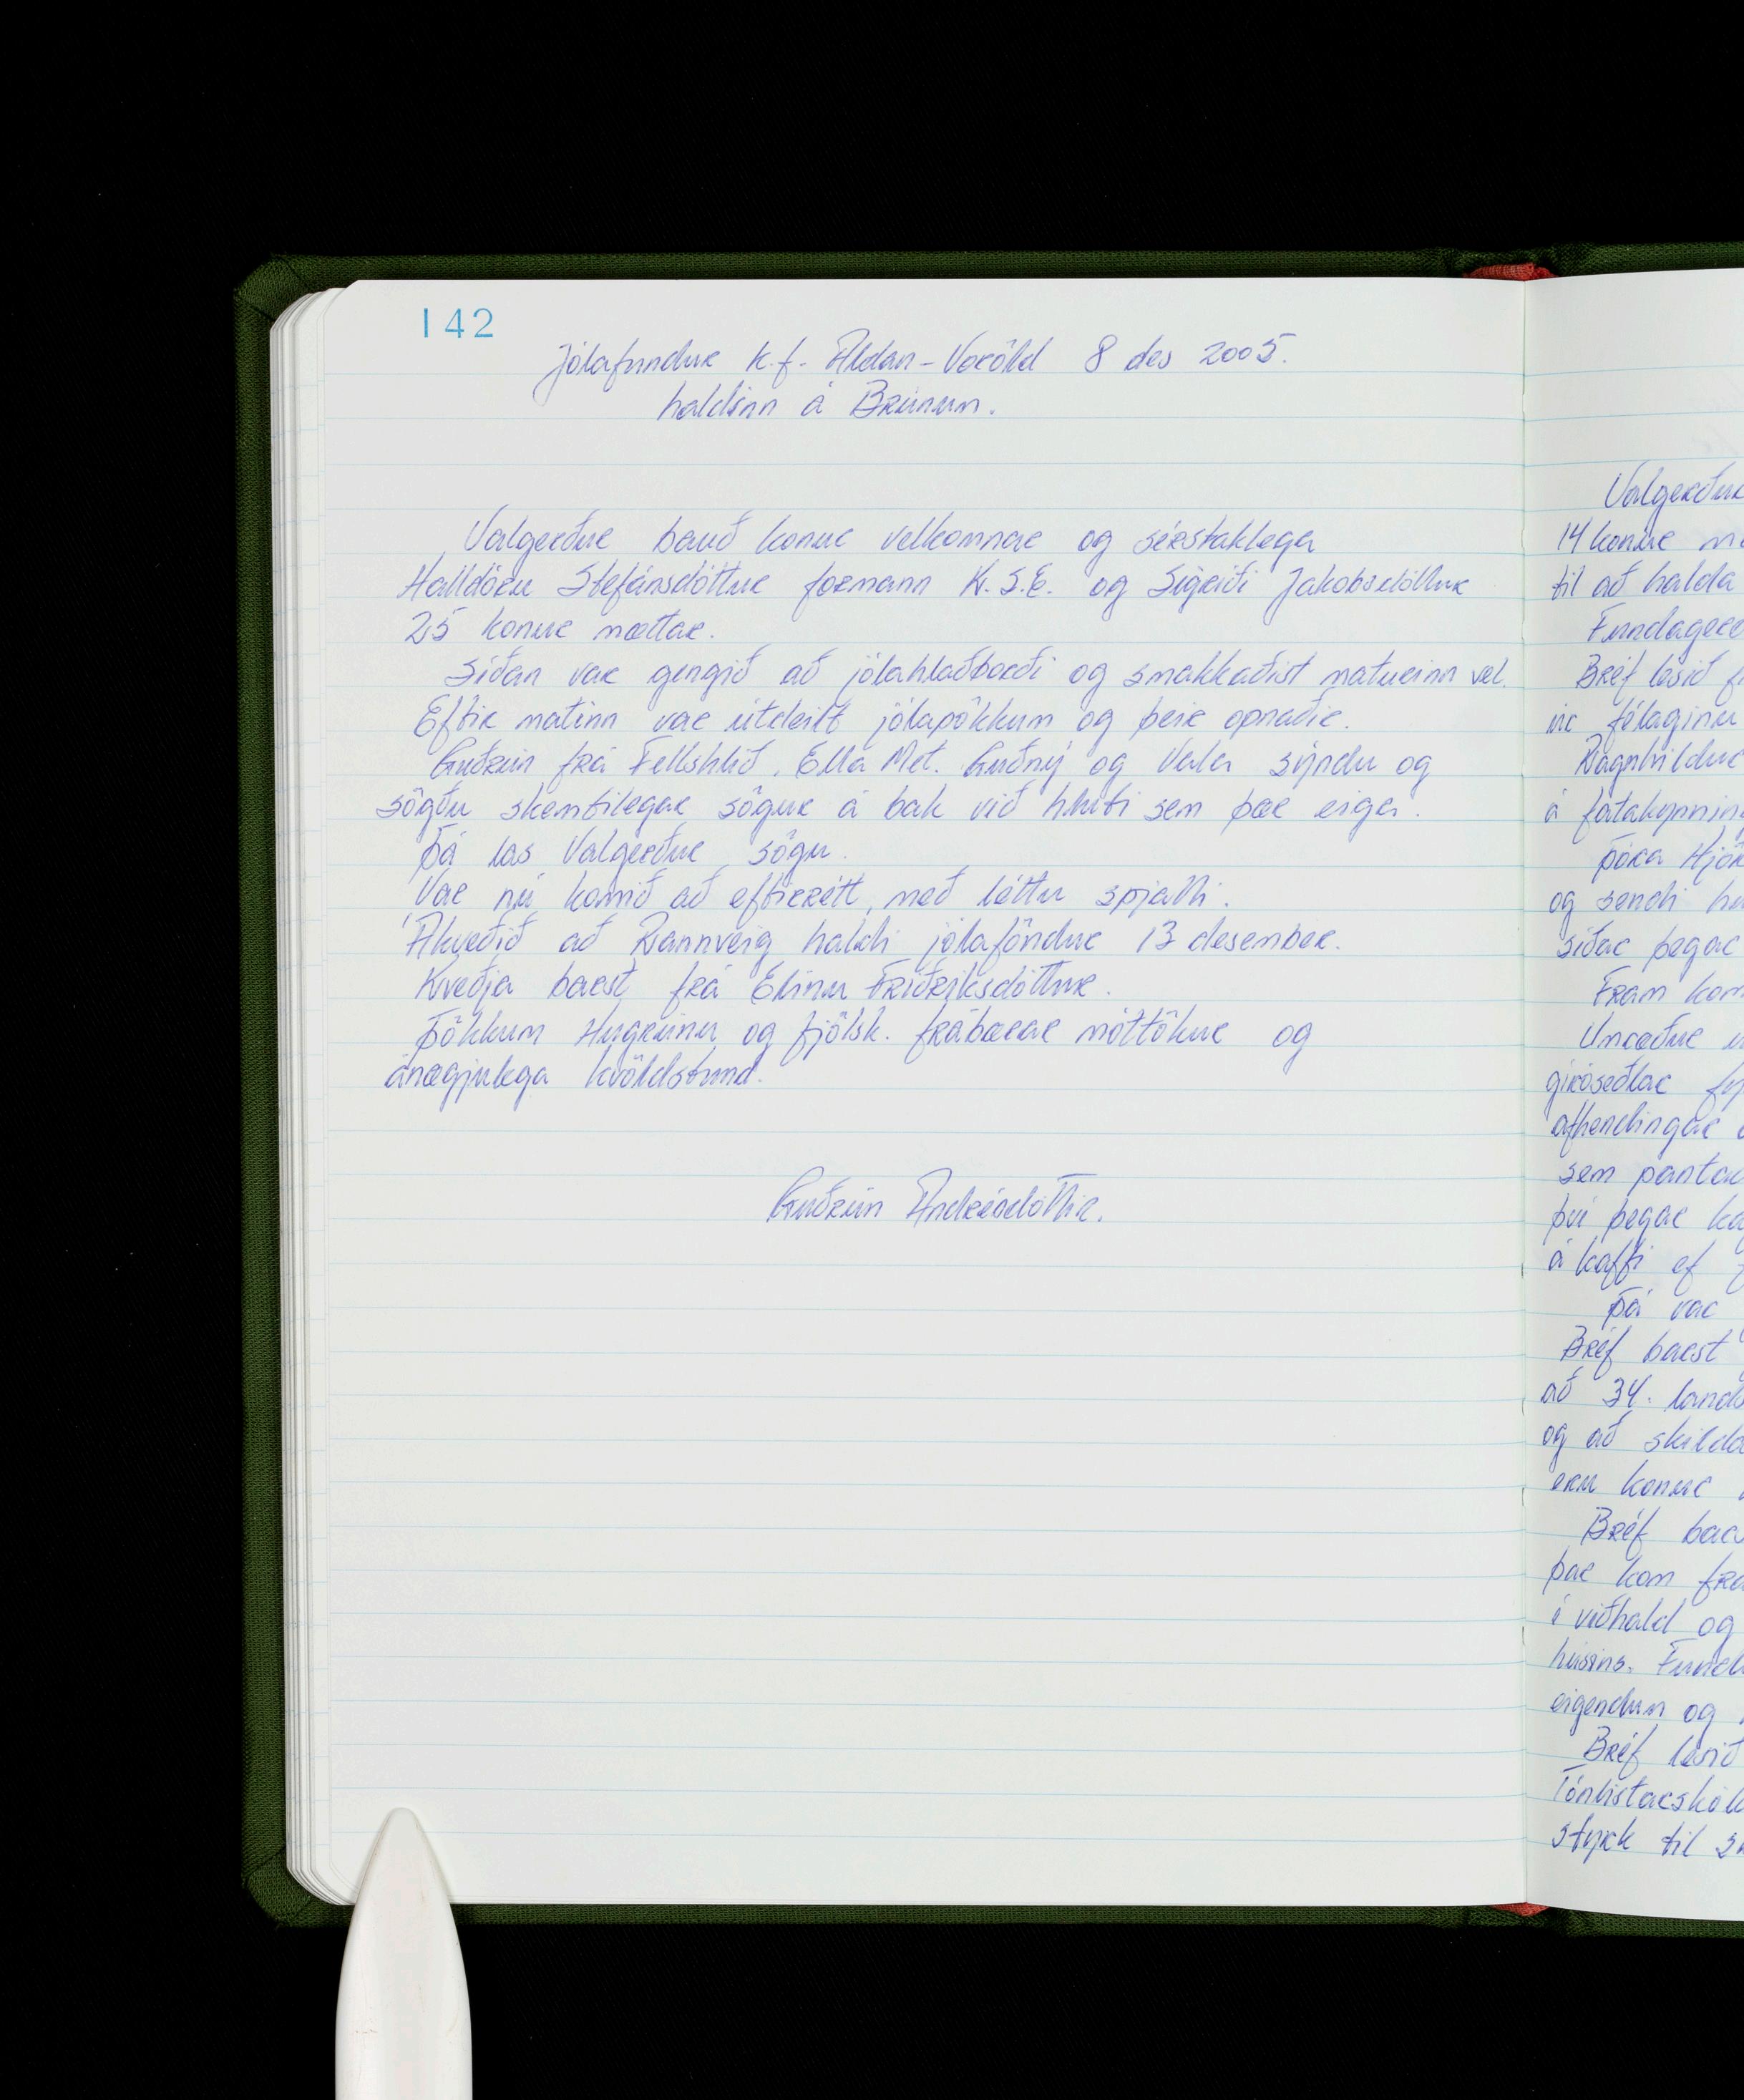 142
Jólafundur k.f. Aldan-Voröld 8 des 2005.
haldinn á Brúnum.
Valgerður bauð konur velkomnar og sérstaklega
Halldóru Stefánsdóttur formann K.S.E. og Sigríði Jakobsdóttur
25 konur mættar.
Síðan var gengið að jólahlaðborði og smakkaðist maturinn vel.
Eftir matinn var útdeilt jólapökkum og þeir opnaðir.
Guðrún frá Fellshlíð, Ella Met. Guðný og Vala sýndu og
sögðu skemtilegar sögur á bak við hluti sem þær eiga.
Þá las Valgerður sögu.
Var nú komið að eftirrétt, með léttu spjalli.
Ákveðið að Rannveig haldi jólaföndur 13 desember.
Kveðja barst frá Elínu Friðriksdóttur.
Þökkum Hugrúnu og fjölsk. frábærar móttökur og
ánægjulega kvöldstund.
Guðrún Andrésdóttir.
Valgerður
14 konur
til að halda
Bréf lesið
úr félaginu
Ragnhildur
Þóra
og sendi
síðar þegar
Fram
Umræður
gíróseðlar
afhendingar
sem
því þegar
á kaffi ef
Þá var
Bréf barst
að 34.
og að
eru konur
Bréf
þar kom
í viðhald og
húsins.
eigendum og
Bréf lesið
styrk til